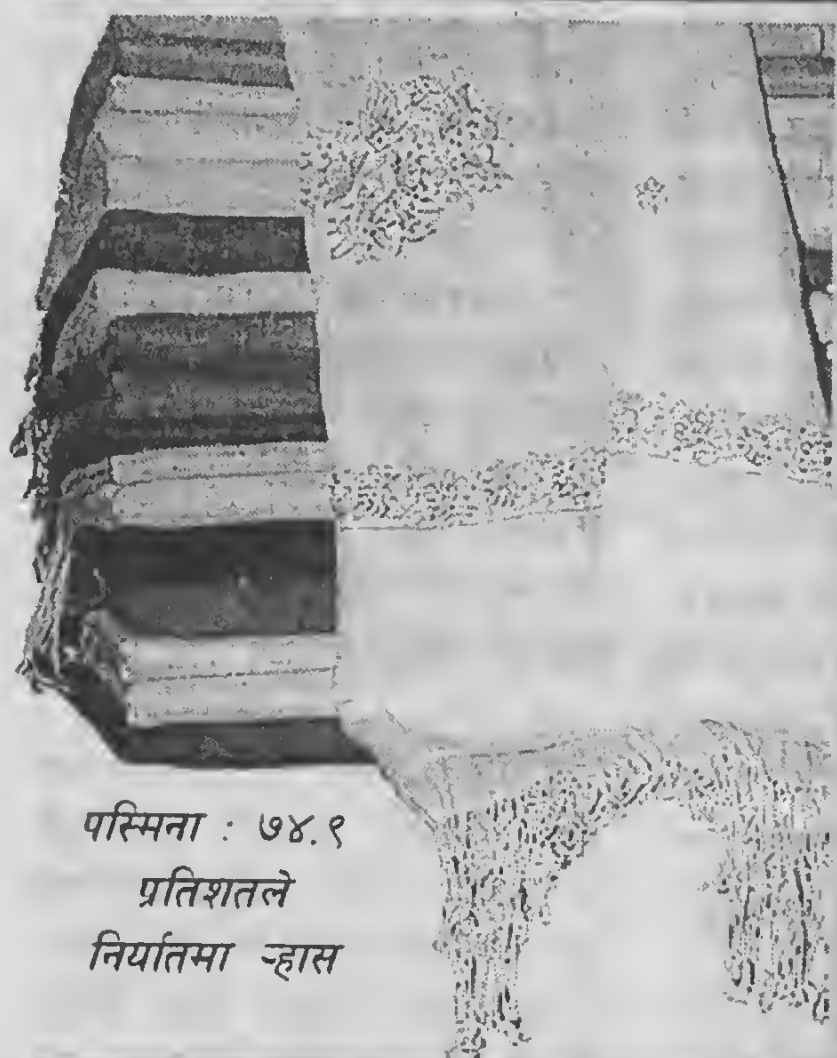 पस्मिना : ७४.९
प्रतिशतले
निर्यातमा ऱ्हास